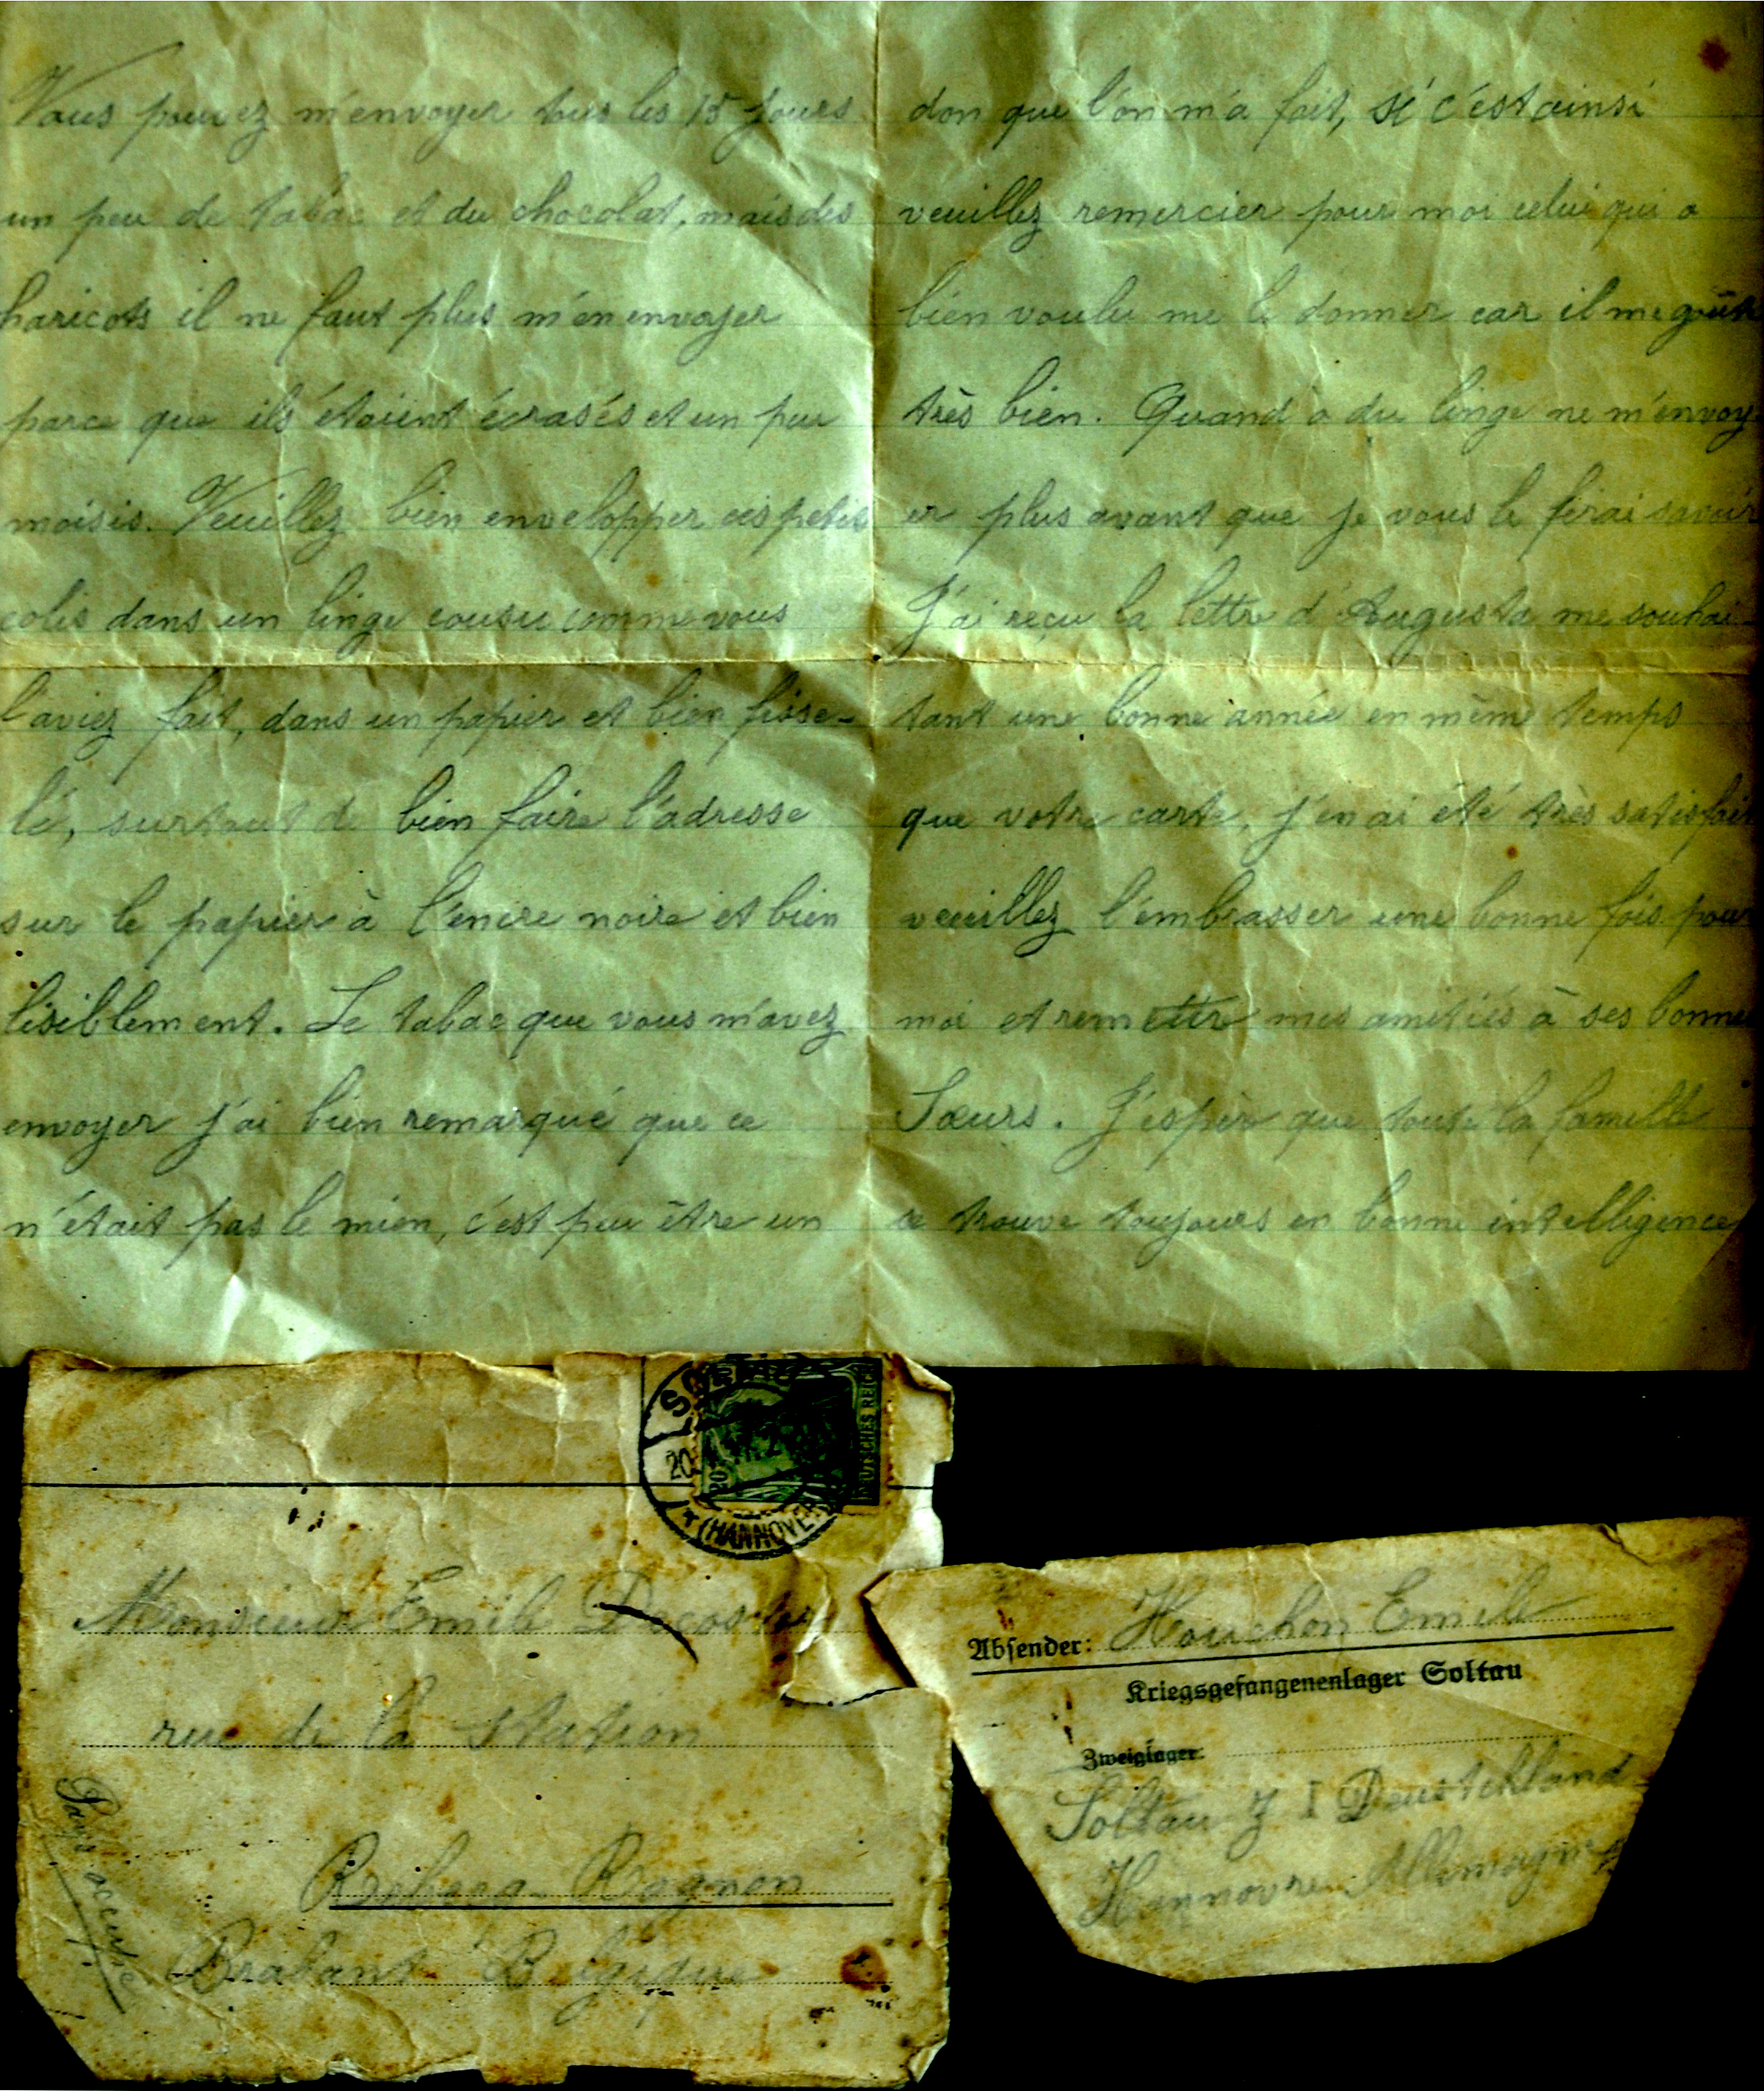 Vous pouvez m'envoyer tous les 15 jours
un peu de tabac et du chocolat, mais des
haricots il ne faut plus m'en envoyer
parce que ils étaient écrasés et un peu
moisis. Veuillez bien envelopper ces petits
colis dans un linge cousu comme vous
l'aviez fait, dans un papier et bien fisse-
lé, surtout de bien faire l'adresse
sur le papier à l'encre noire et bien
lisiblement. Le tabac que vous m'avez
envoyer j'ai bien remarqué que ce
n'était pas le mien, c'est peu être un
don que l'on m'a fait, si c'est ainsi
veuillez remercier pour moi celui qui a
bien voulu me le donner car il me goûte
très bien. Quand à du linge ne m'envoy
er plus avant que je vous le ferai savoir
J'ai reçu la lettre d'Augusta me souhai-
tant une bonne année en même temps
que votre carte, j'en ai été très satisfait
veuillez l'embrasser une bonne fois pour
moi et remettre mes amitiés à ses bonnes
Sœurs. J'espèr que toute la famille
se trouve toujours en bonne intelligence
DEUTSCHES REICH
20
(HANNOVER)
Monsieur Emile Decoster
rue de la Station
Rebecq Rognon
Brabant Belgique
Pays occupé
Absender: Houchon Emile
Kriegsgefangenenlager Soltau
Zweiglager:
Soltau Z I Deustchland
Hannovre Allemagne